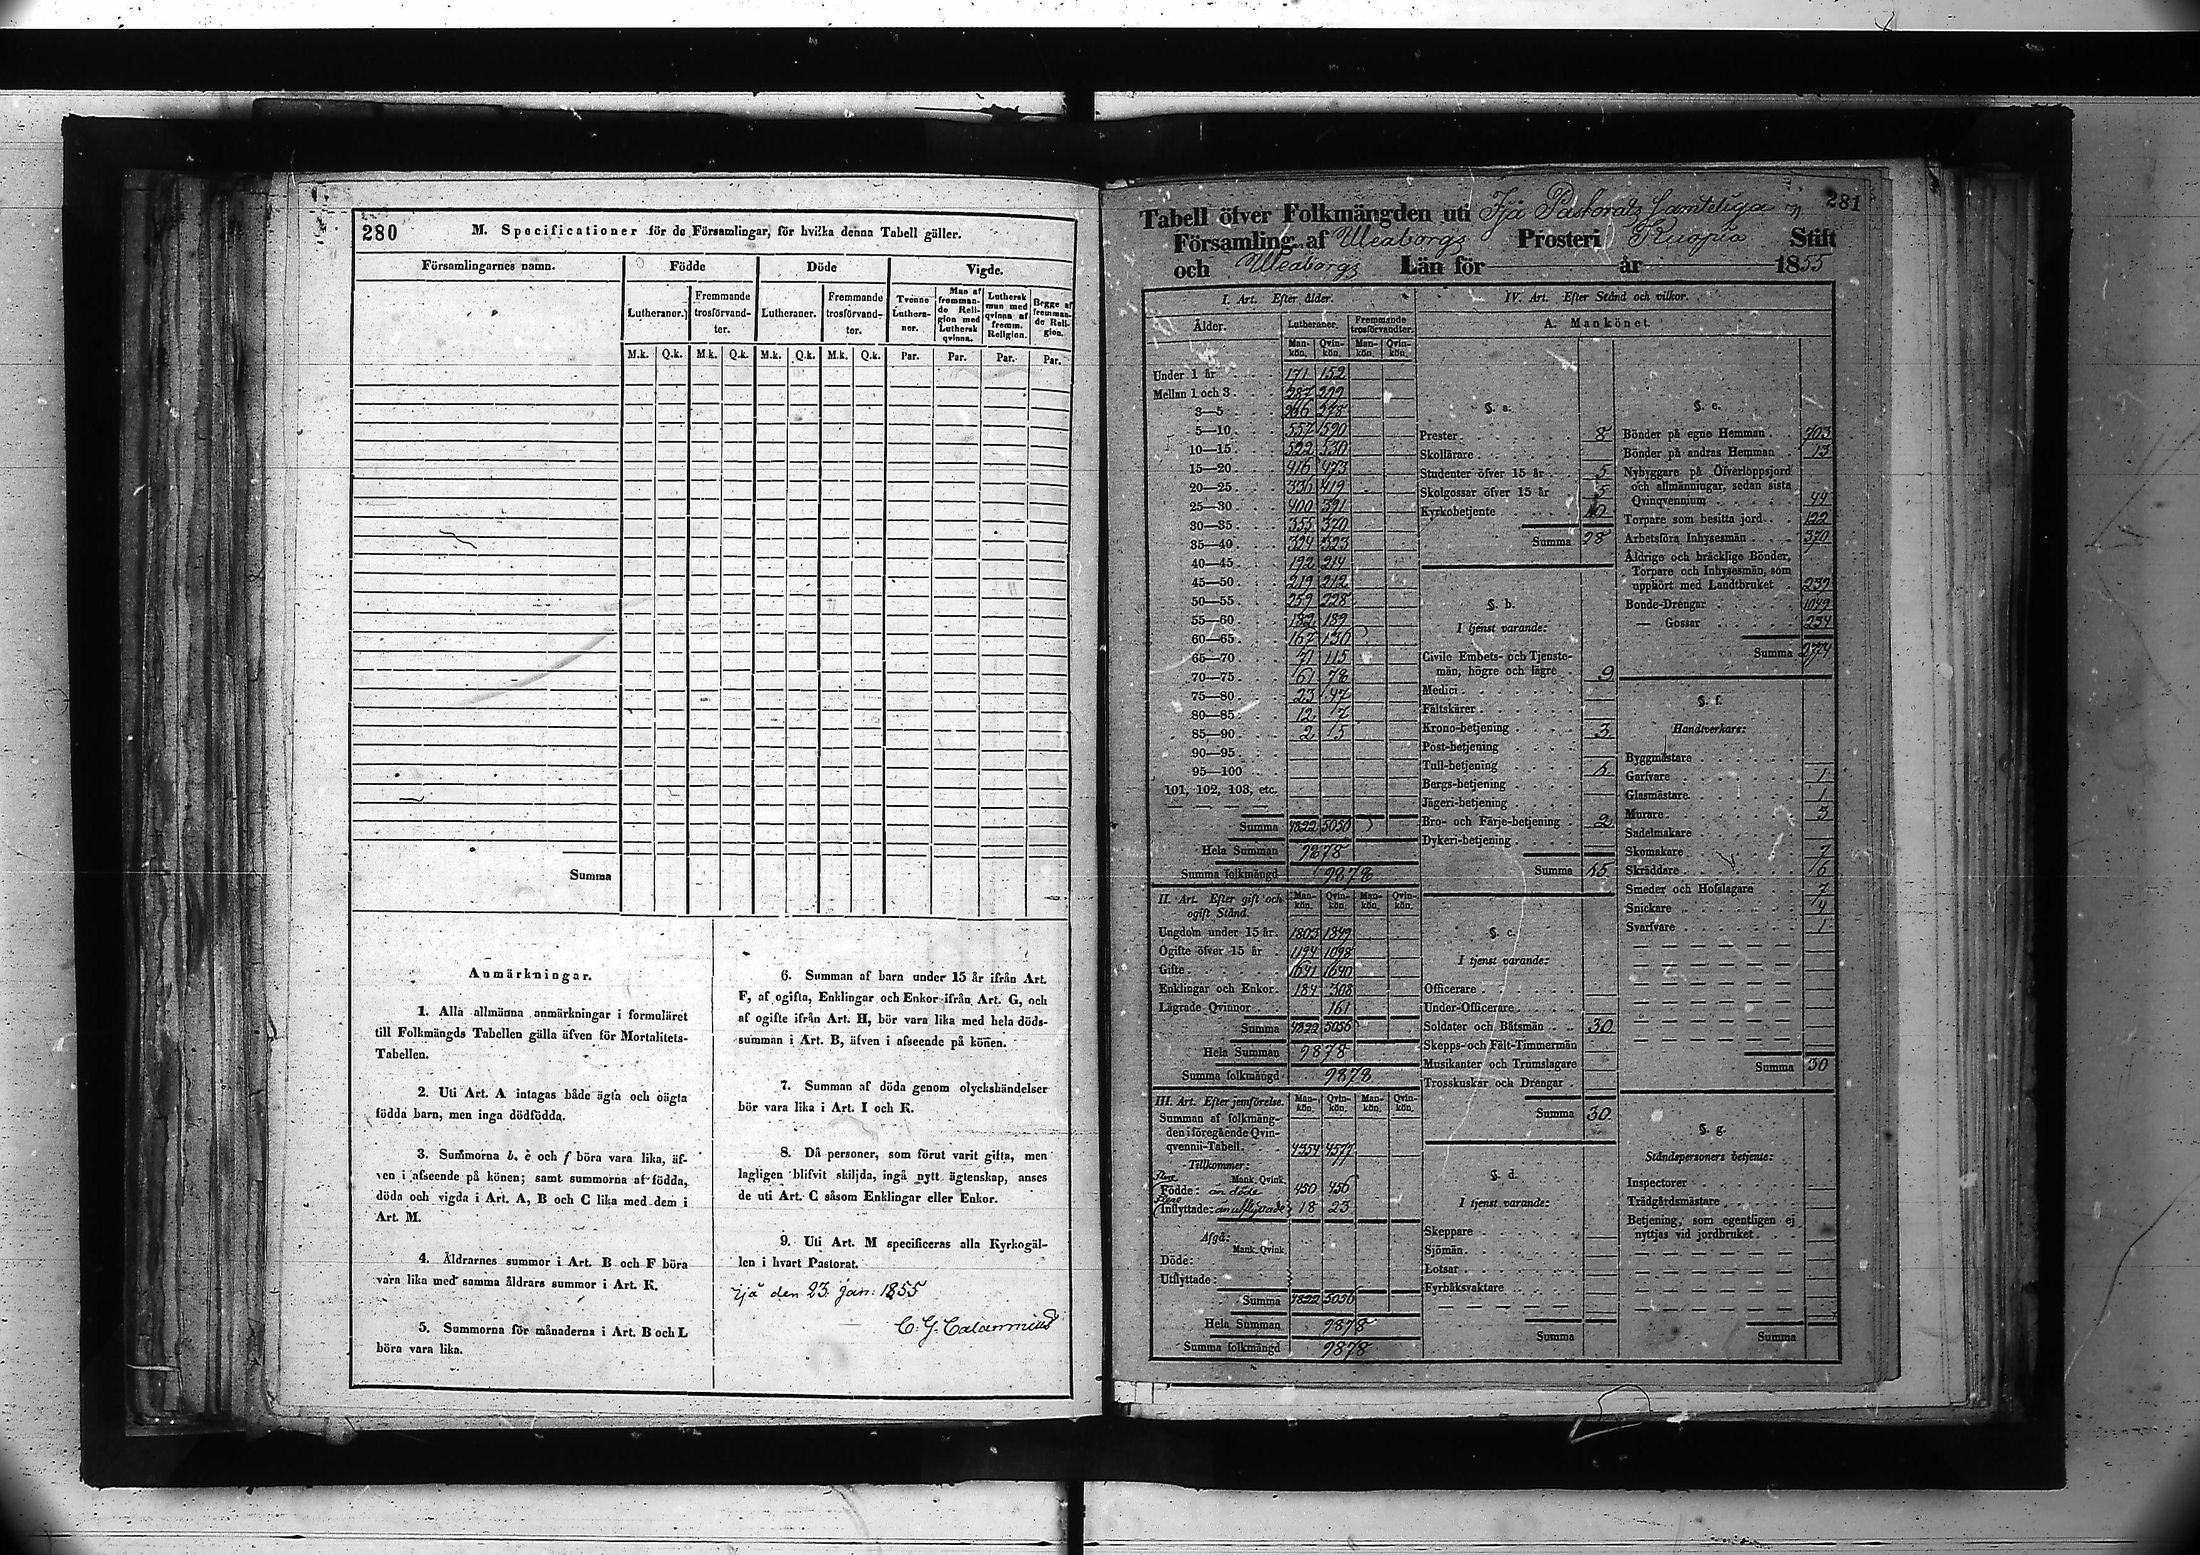 280 M. Specificationer för de Församlingar, för hvilka denna Tabell gäller.
Församlingarnes namn. Födde Döde Vigde.
Lutheraner. Fremmande trosförvandter. Lutheraner. Fremmande trosförvandter. Tvenne Lutheraner. Man af fremmande Religion med Luthersk qvinna. Luthersk man med qvinna af fremm. Religion. Begge af fremmande Religion.
M.k. Q.k. M.k. Q.k. M.k. Q.k. M.k. Q.k. Par. Par. Par. Par.
Summa
Anmärkningar.
1. Alla allmänna anmärkningar i formuläret
till Folkmängds Tabellen gälla äfven för Mortalitets-
Tabellen.
2. Uti Art. A intagas både ägta och oägta
födda barn, men inga dödfödda.
3. Summorna b, e och f böra vara lika, äf-
ven i afseende på könen; samt summorna af födda,
döda och vigda i Art. A, B och C lika med dem i
Art. M.
4. Åldrarnes summor i Art. B och F böra
vara lika med samma åldrars summor i Art. K.
5. Summorna för månaderna i Art. B och L
böra vara lika.
6. Summan af barn under 15 år ifrån Art.
F, af ogifta, Enklingar och Enkor ifrån Art. G, och
af ogifte ifrån Art. H, bör vara lika med hela döds-
summan i Art. B, äfven i afseende på könen.
7. Summan af döda genom olyckshändelser
bör vara lika i Art. I och K.
8. Då personer, som förut varit gifta, men
lagligen blifvit skiljda, ingå nytt ägtenskap, anses
de uti Art. C såsom Enklingar eller Enkor.
9. Uti Art. M specificeras alla Kyrkogäl-
len i hvart Pastorat.
Ijå den 23 Jan: 1855
C. G. Calamnius
281
Tabell öfver Folkmängden uti Ijå Pastorats samteliga
Församling af Uleaborgs Prosteri Kuopio Stift
och Uleaborgs Län för år 1855
I. Art. Efter ålder.
Ålder. Lutheraner. Fremmande trosförvandter.
Mankön. Qvinkön. Mankön. Qvinkön.
Under 1 år 171 152
Mellan 1 och 3 287 299
3—5 266 278
5—10 557 590
10—15 522 530
15—20 416 423
20—25 336 419
25—30 400 391
30—35 355 370
35—40 324 323
40—45 192 214
45—50 219 212
50—55 259 228
55—60 182 189
60—65 167 136
65—70 71 115
70—75 61 78
75—80 23 47
80—85 12 17
85—90 2 15
90—95
95—100
101, 102, 103, etc.
Summa 4822 5056
Hela Summan 9878
Summa folkmängd 9878
II. Art. Efter gift och ogift Stånd. Mankön. Qvinkön. Mankön. Qvinkön.
Ungdom under 15 år. 1803 1849
Ogifte öfver 15 år 1194 1098
Gifte 1641 1640
Enklingar och Enkor. 184 308
Lägrade Qvinnor 161
Summa 4822 5056
Hela Summan 9878
Summa folkmängd 9878
III. Art. Efter jemförelse. Mankön. Qvinkön. Mankön. Qvinkön.
Summan af folkmäng-
den i föregående Qvin-
qvennii-Tabell. 4354 4577
Tillkommer:
Mank. Qvink.
Flere Födde: än döde 450 456
Flere Inflyttade: än utflyttade 18 23
Afgå:
Mank. Qvink.
Döde:
Utflyttade:
Summa 4822 5056
Hela Summan 9878
Summa folkmängd 9878
IV. Art. Efter Stånd och vilkor.
A. Mankönet.
§. a.
Prester 8
Skollärare
Studenter öfver 15 år 5
Skolgossar öfver 15 år 5
Kyrkobetjente 10
Summa 28
§. b.
I tjenst varande:
Civile Embets- och Tjenste-
män, högre och lägre 9
Medici
Fältskärer
Krono-betjening 3
Post-betjening
Tull-betjening
Bergs-betjening
Jägeri-betjening
Bro- och Färje-betjening 2
Dykeri-betjening
Summa 15
§. c.
I tjenst varande:
Officerare
Under-Officerare
Soldater och Båtsmän 30
Skepps- och Fält-Timmermän
Musikanter och Trumslagare
Trosskuskar och Drengar
Summa 30
§. d.
I tjenst varande:
Skeppare
Sjömän.
Lotsar
Fyrbåksvaktare
Summa
§. e.
Bönder på egne Hemman 703
Bönder på andras Hemman 13
Nybyggare på Öfverloppsjord
och allmänningar, sedan sista
Qvinqvennium 44
Torpare som besitta jord 122
Arbetsföra Inhysesmän 370
Åldrige och bräcklige Bönder,
Torpare och Inhysesmän, som
upphört med Landtbruket 239
Bonde-Drengar 1049
— Gossar 234
Summa 2774
§. f.
Handtverkare:
Byggmästare
Garfvare 1
Glasmästare 1
Murare 3
Sadelmakare
Skomakare 7
Skräddare 6
Smeder och Hofslagare 7
Snickare 4
Svarfvare 1
Summa 30
§. g.
Ståndspersoners betjente:
Inspectorer
Trädgårdsmästare
Betjening, som egentligen ej
nyttjas vid jordbruket
Summa